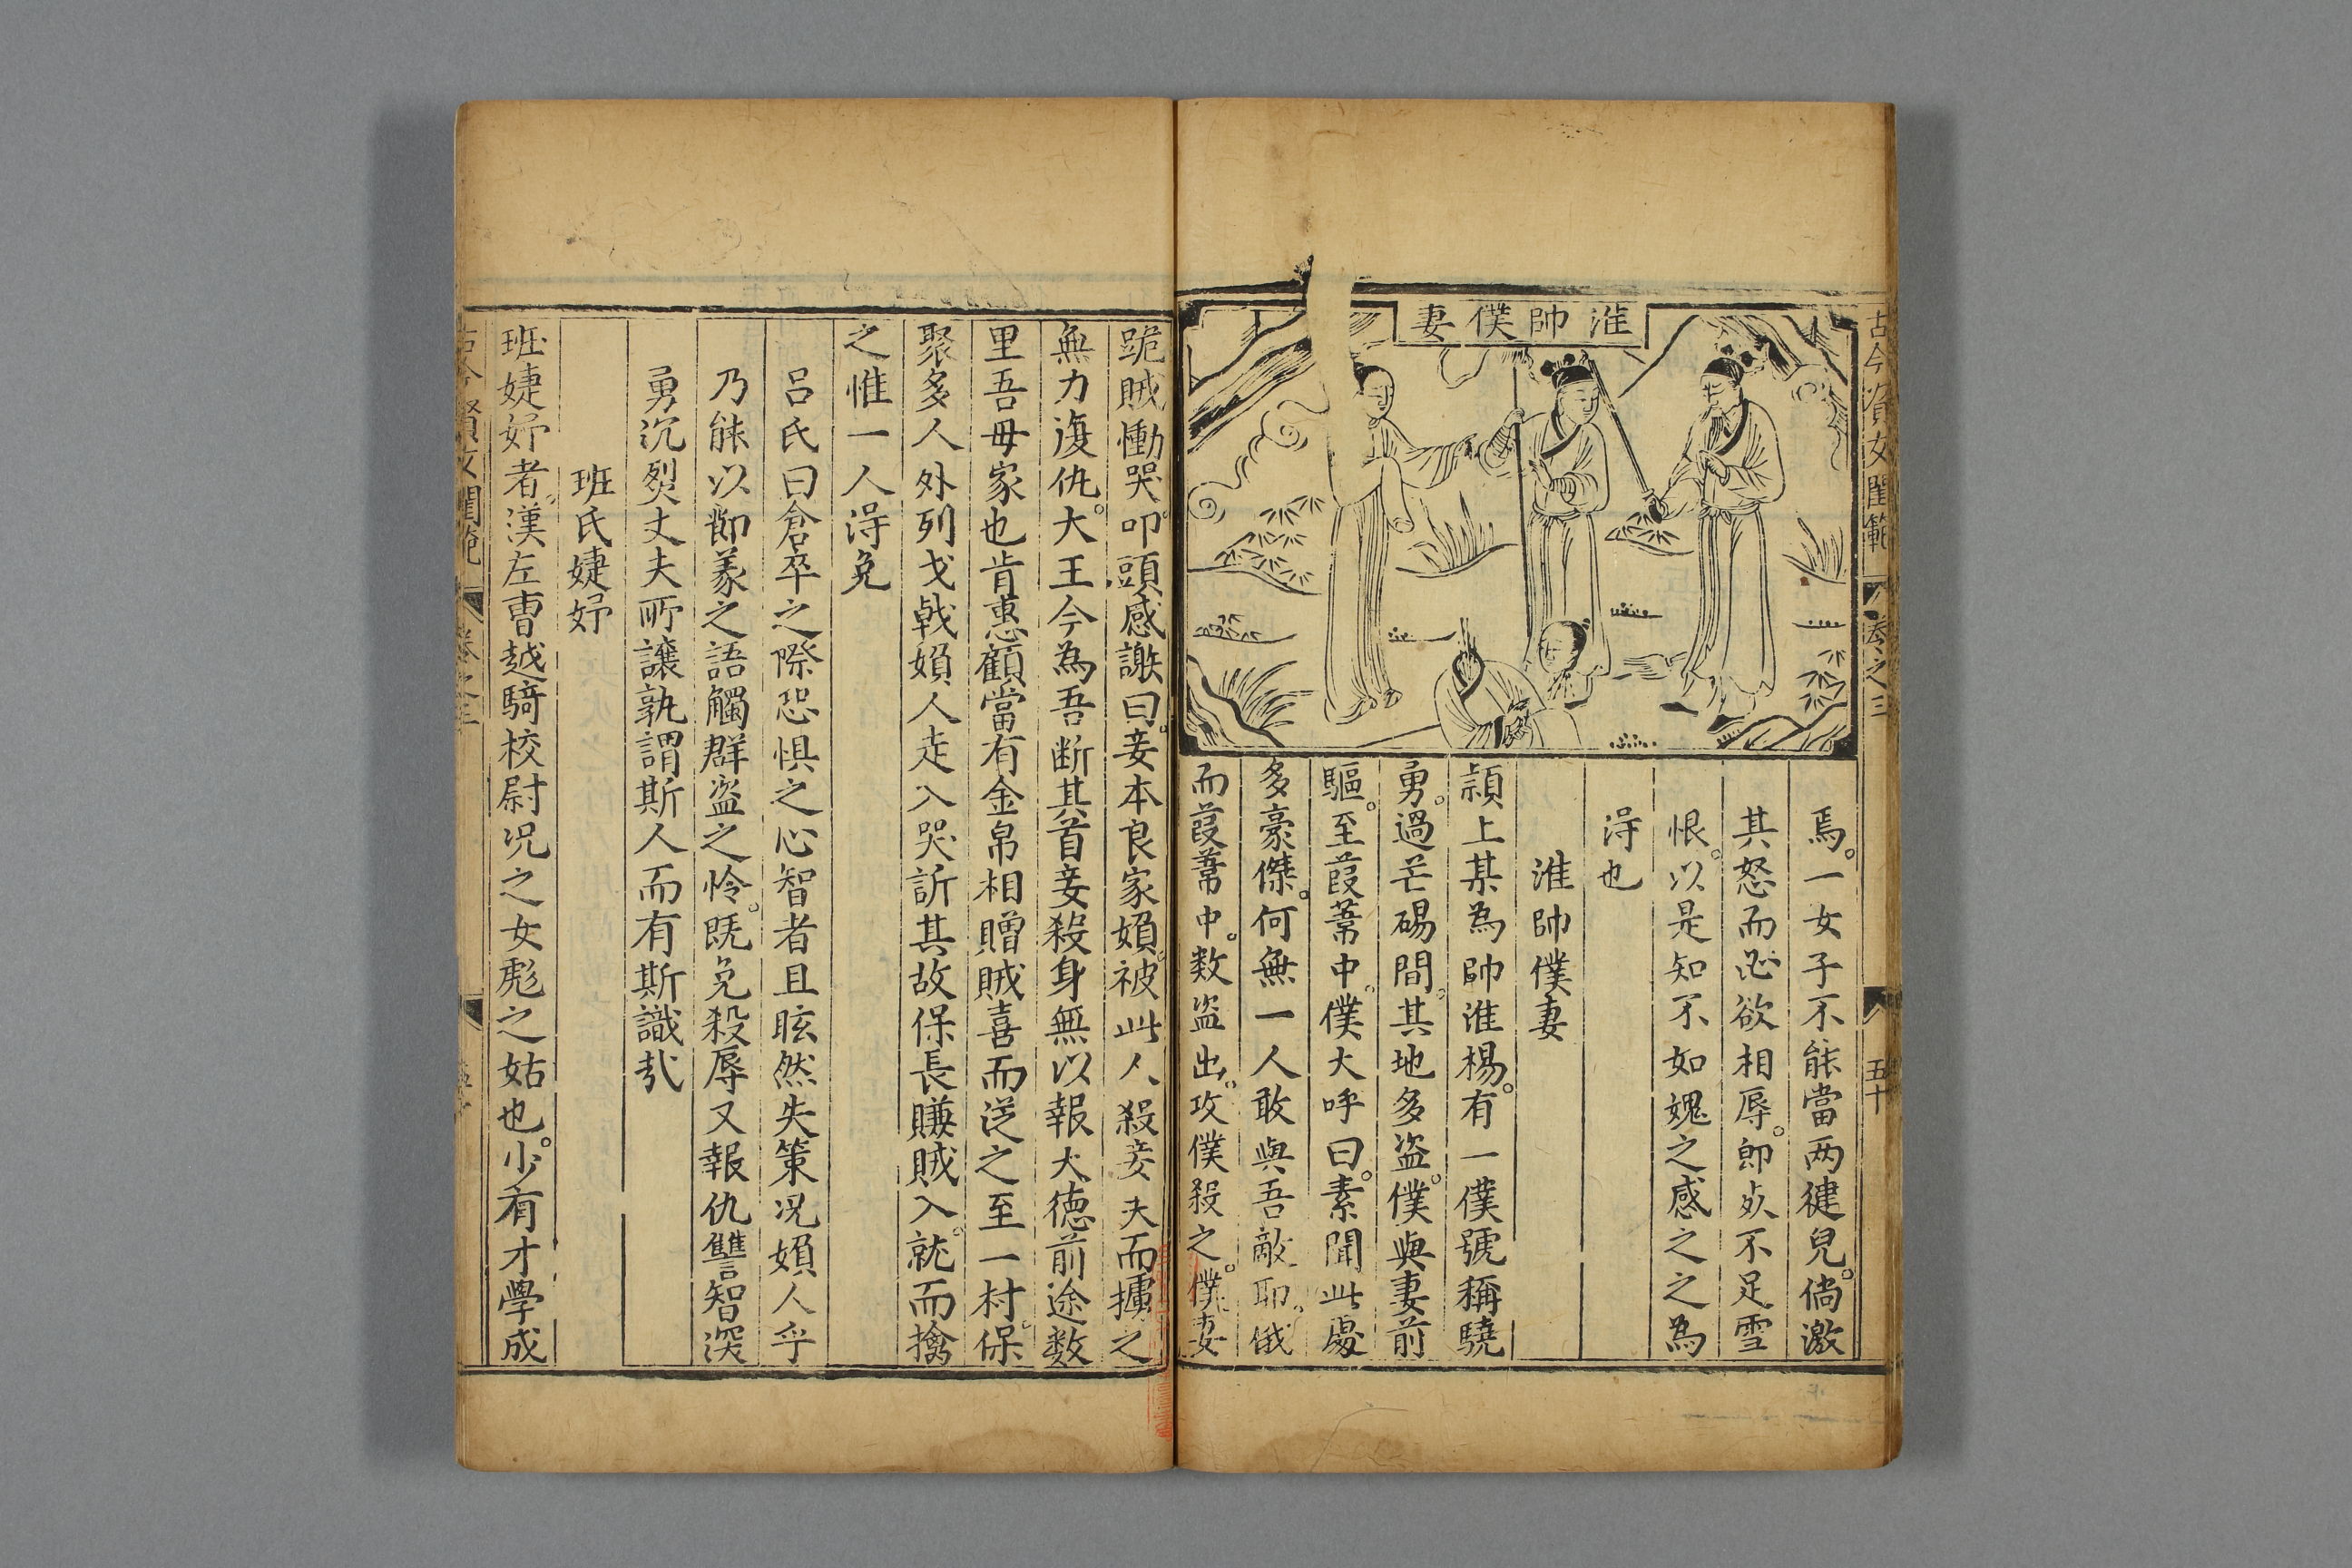 古今賢女閨範 卷之三 五十
淮帥僕妻
焉。一女子不能當兩健兒。倘激
其怒而必欲相辱。即死不足雪
恨。以是知不如媿之感之之為
淂也
淮帥僕妻
潁上某為帥淮楊。有一僕號稱驍
勇。過芒碭間。其地多盗。僕與妻前
驅。至葭葦中。僕大呼曰。素聞此處
多豪傑。何無一人敢與吾敵耶。俄
而葭葦中。数盗出。攻僕殺之。僕妻
跪賊慟哭。叩頭感謝曰。妾本良家婦。被此人殺妾夫而擄之
無力復仇。大王今為吾断其首妾殺身無以報大德前途数
里吾母家也肯惠顧當有金帛相贈賊喜而從之至一村。保
聚多人外列戈戟婦人走入哭訴其故保長賺賊入。就而擒
之惟一人淂免
呂氏曰倉卒之際恐惧之心智者且眩然失策况婦人乎
乃能以節義之語觸群盗之怜。既免殺辱又報仇讐智深
勇沉烈丈夫所讓孰謂斯人而有斯識哉
班氏婕妤
班婕妤者。漢左曹越騎校尉况之女彪之姑也。少有才學成
古今賢女閨範 卷之三